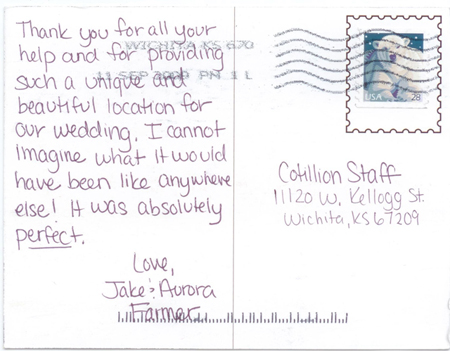 Thank you for all your
help and for providing
such a unique and
beautiful location for
our wedding. I cannot
imagine what it would
have been like anywhere
else! It was absolutely
perfect.
Love,
Jake & Aurora
Farmer
WICHITA KS 670
11 SEP PM 1 L
USA 28
Cotillion Staff
11120 W. Kellogg St.
Wichita, KS 67209